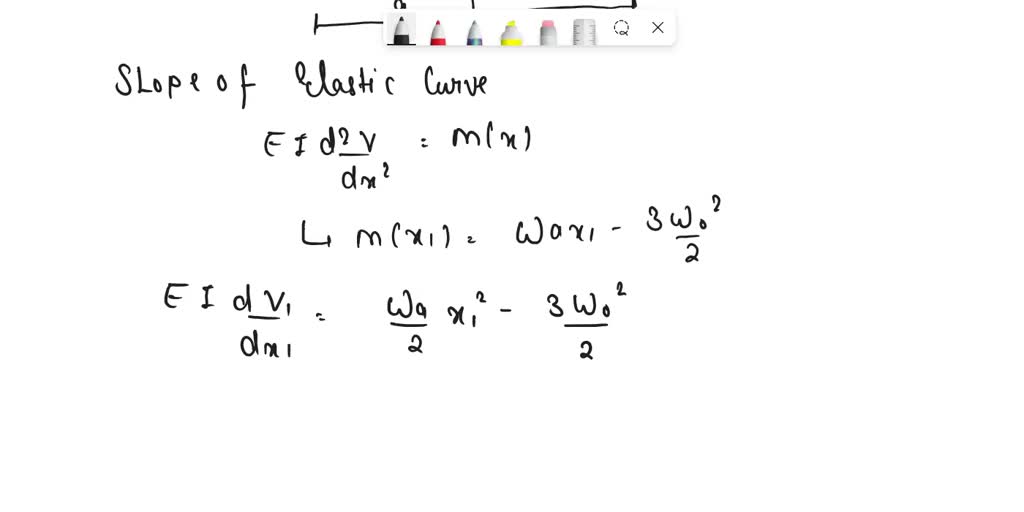 Slope of Elastic Curve
E I d²V/dx² = m(x)
↳ m(x₁) = ωax₁ - 3ω₀²/2
E I dV₁/dx₁ = ωa/2 x₁² - 3ω₀²/2